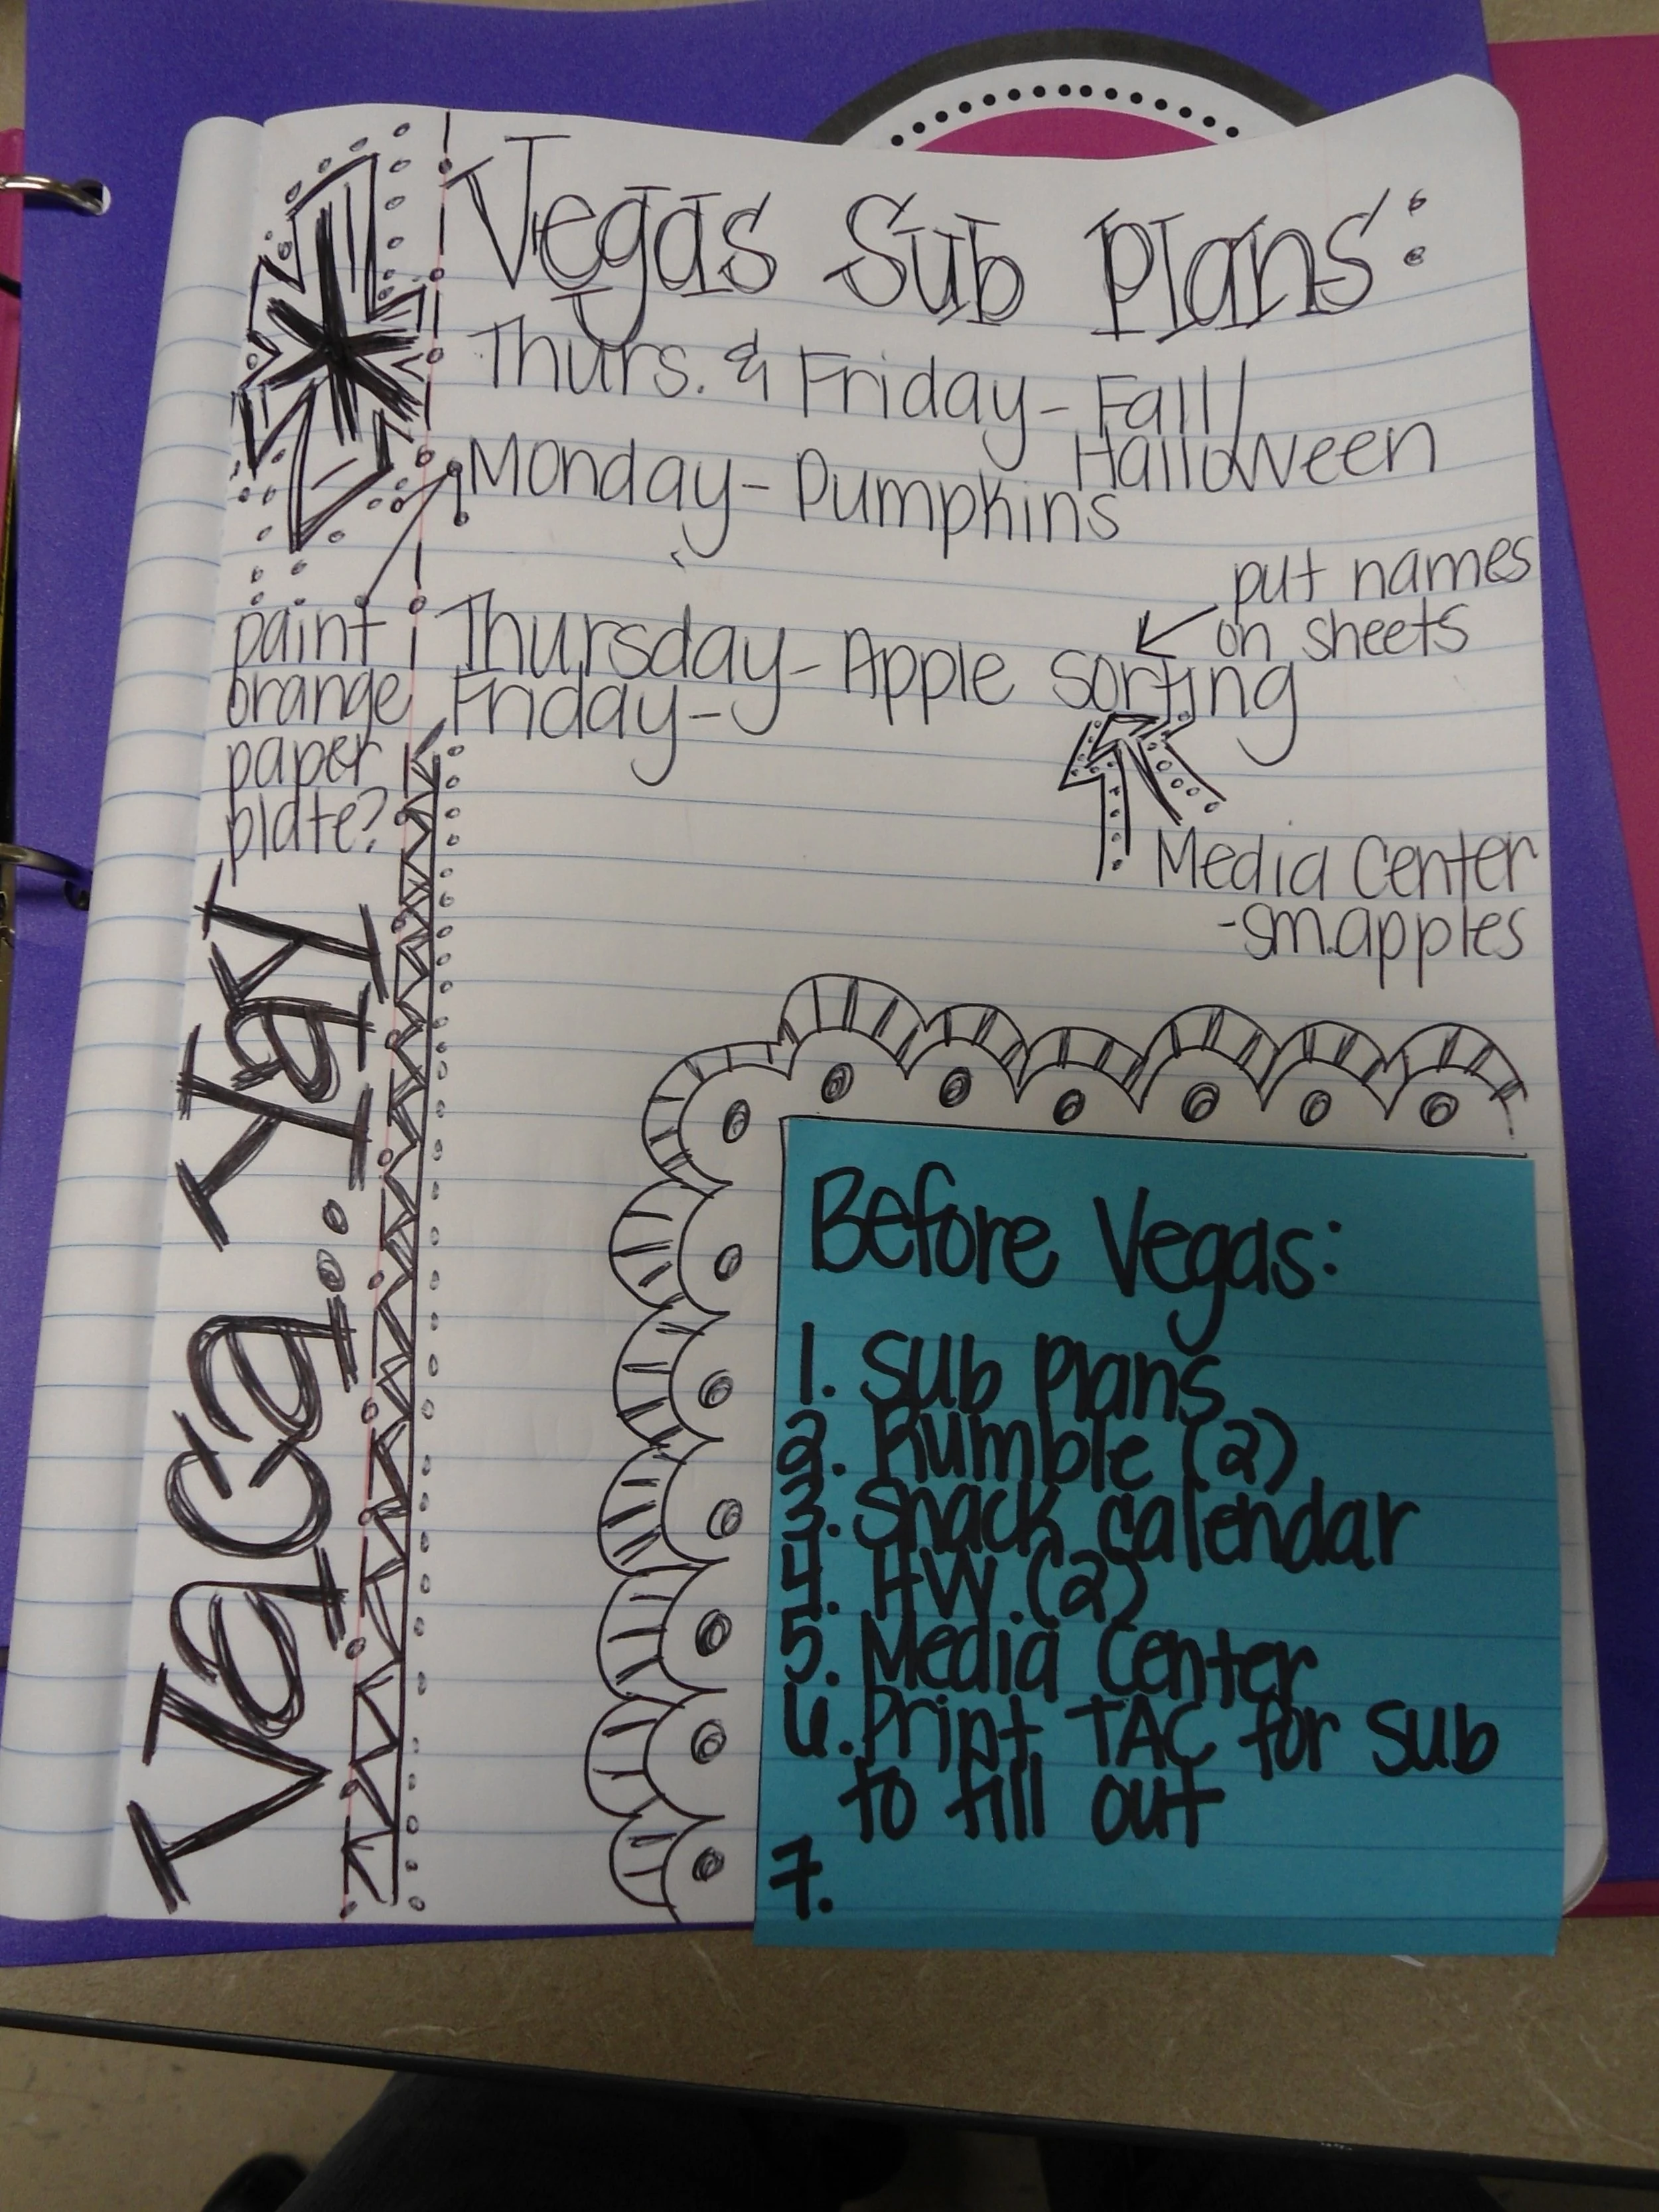 Vegas Sub Plans:
Thurs. & Friday - Fall/
Halloween
Monday - Pumpkins
paint
orange
paper
plate?
put names
on sheets
Thursday - Apple Sorting
Friday -
Media Center
- sm. apples
VaCa.. Yay
Before Vegas:
1. Sub Plans
2. Rumble (2)
3. Snack calendar
4. HW. (2)
5. Media Center
6. Print TAC for sub
to fill out
7.